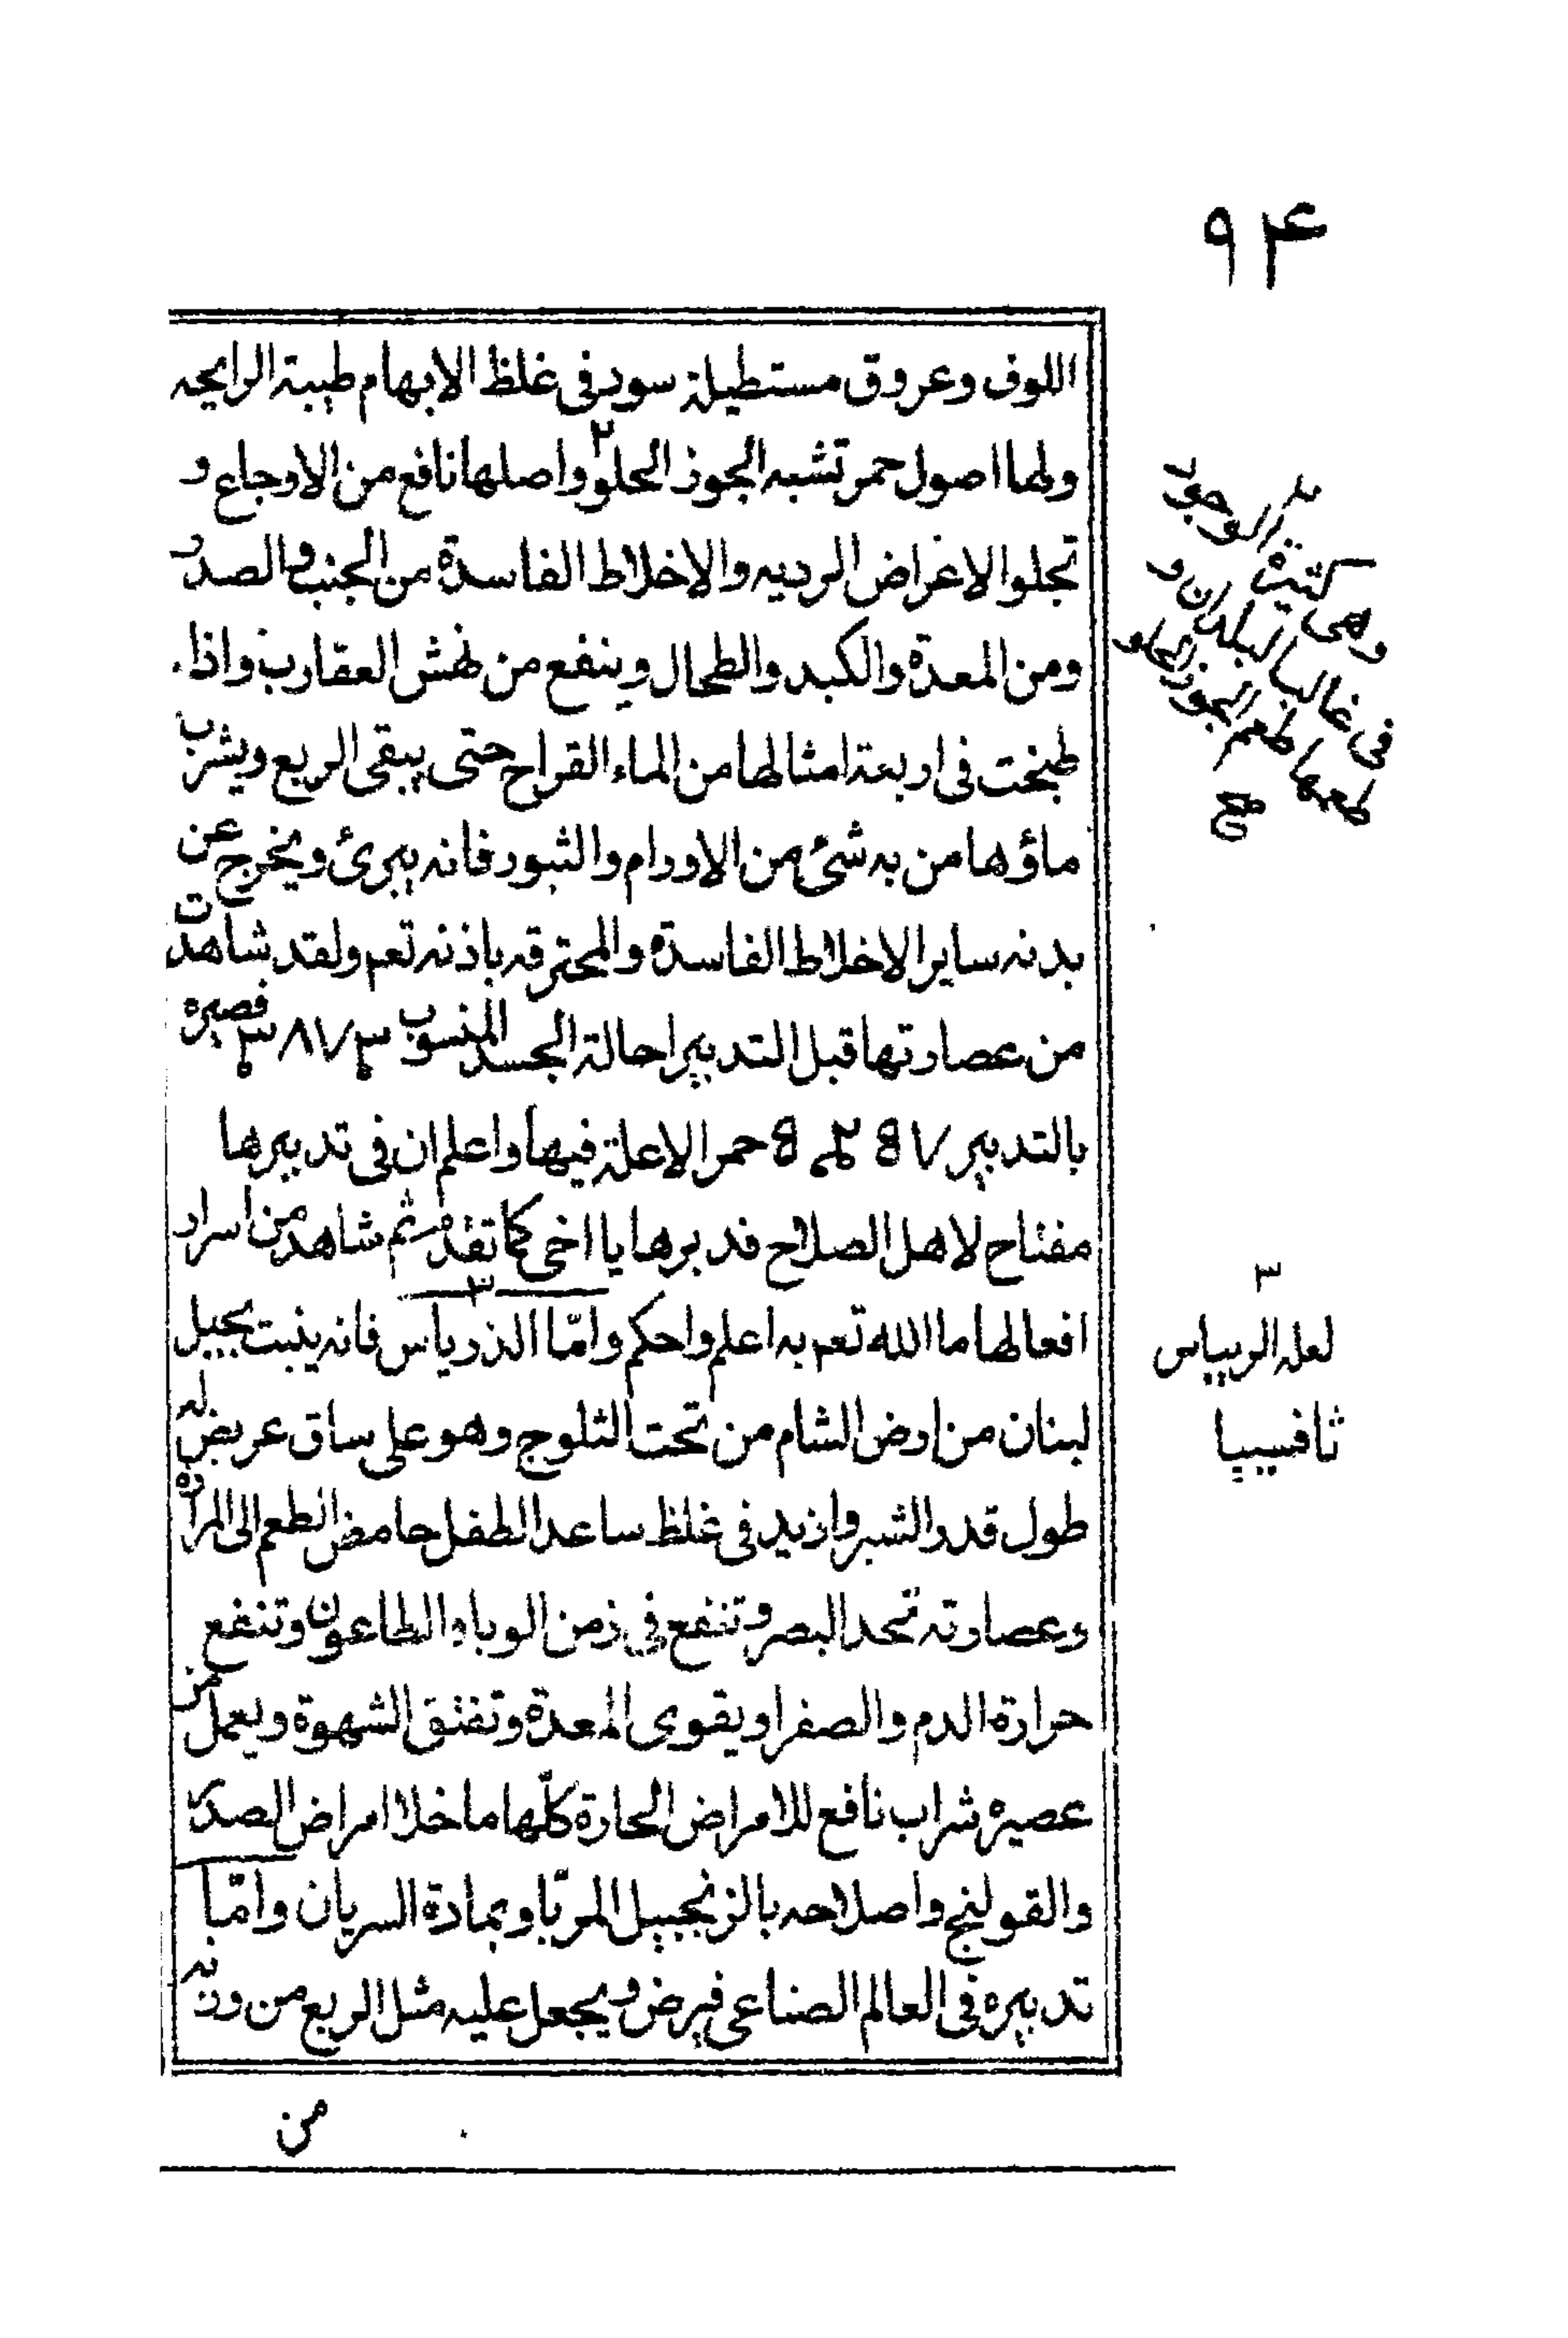 ۹۴
اللوف وعروق مستطيلة سود فى غلظ الابهام طيبة الرايحه
ولها اصول حمر تشبه الجوز الحلو۲ واصلها نافع من الاوجاع و
تجلوا الاغراض الرديه والاخلاط الفاسدة من الجنب والصدر
ومن المعدة والكبد والطحال وينفع من نهش العقارب واذا
طبخت فى اربعة امثالها من الماء القراح حتى يبقى الربع ويشرب
ماؤها من به شئ من الاورام والثبور فانه يبرئ ويخرج عن
بدنه ساير الاخلاط الفاسدة والمحترقه باذنه تعم ولقد شاهدت
من عصارتها قبل التدبير احالة الجسد المنسوب فصيره
بالتدبير حمر الاعلة فيها واعلم ان فى تدبيرها
مفتاح لاهل الصلاح فدبرها يا اخى كما تقدم ثم شاهد من اسرار
افعالها ما الله تعم به اعلم واحكم وامّا الذرياس۳ فانه ينبت بجبل
لبنان من ارض الشام من تحت الثلوج وهو على ساق عريض له
طول قدر الشبر وازيد فى غلظ ساعد الطفل حامض الطعم الى المرارة
وعصارته تحد البصر وتنفع فى زمن الوبا والطاعون وتنفع
حرارة الدم والصفرا ويقوى المعدة وتفتق الشهوة ويعمل من
عصيره شراب نافع للامراض الحارة كلّها ما خلا امراض الصدر
والقولنج واصلاحه بالزنجبيل المربّا وبمادة السريان وامّا
تدبيره فى العالم الصناعى فيرض ويجعل عليه مثل الربع من وزنه
من
وهى كثيرة الوجود
فى غالب البلدان و
طعمها طعم الجوز الحلو
صح
۳
لعله الريباس
ثافسيا